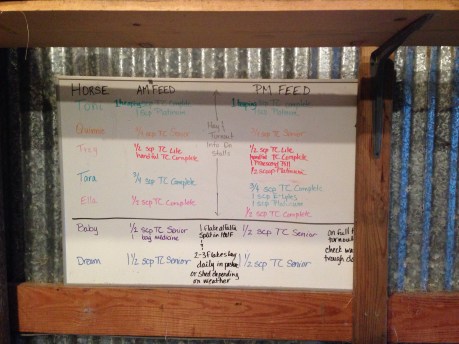 HORSE AM FEED PM FEED
Toni 1 heaping scp TC Complete 1 heaping scp TC Complete
1 scp Platinum
Quinnie scp TC Senior Hay & scp TC Senior
Turnout
Info on
Stalls
Trey 1/2 scp TC Lite 1/2 scp TC Lite
handful TC Complete handful TC Complete
1 Pill
1/2 scoop Platinum
Tara 3/4 scp TC Complete 3/4 scp TC Complete
1 scp E-lytes
1 scp Platinum
Ella 1/2 scp TC Complete 1/2 scp TC Complete
Baby 1/2 scp TC Senior 1 flake alfalfa 1/2 scp TC Senior on full t
1 bag medicine split in half turnou
& check wa
trough cl
Dream 1 1/2 scp TC Senior 2-3 flakes hay 1 1/2 scp TC Senior
daily in
or shed depending
on weather